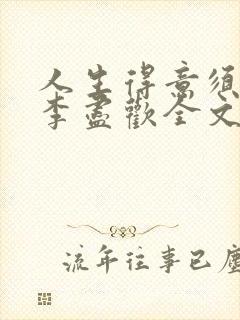 人生得意须
李盡歡全文
流年往事已塵